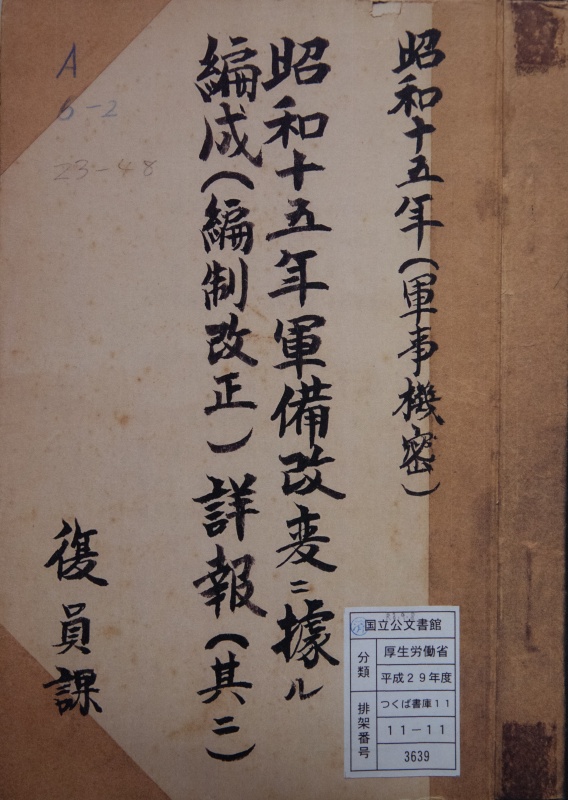 昭和十五年(軍事機密)
昭和十五年軍備改変ニ據ル
編成(編制改正)詳報(其二)
復員課
A
6-2
23-48
国立公文書館
分類
厚生労働省
平成29年度
排架番号
つくば書庫11
11-11
3639